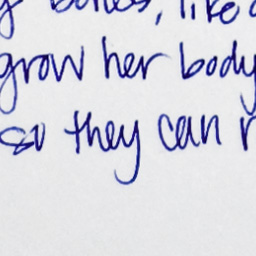 bones, like
grow her body
so they can